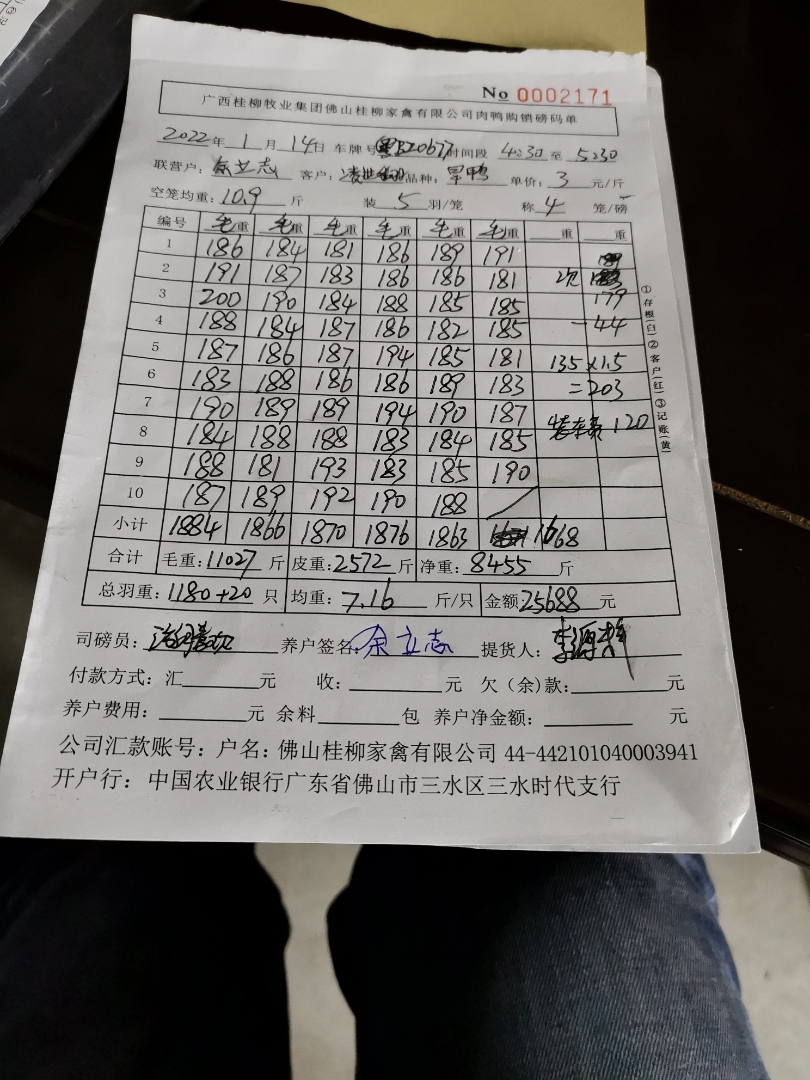 No 0002171
广西桂柳牧业集团佛山桂柳家禽有限公司肉鸭购销磅码单
2022年 1月 14日 车牌号 粤BZ0677 时间段 4:30 至 5:30
联营户: 余立志 客户: 品种: 旱鸭 单价: 3 元/斤
空笼均重: 10.9 斤 装 5 羽/笼 称 4 笼/磅
编号 毛重 毛重 毛重 毛重 毛重 毛重 重 重
1 186 184 181 186 189 191
2 191 187 183 186 186 181 次
3 200 190 184 188 185 185 179
4 188 184 187 186 182 185 -44
5 187 186 187 194 185 181 135×1.5
6 183 188 186 186 189 183 =203
7 190 189 189 194 190 187 装车费 120
8 184 188 188 183 184 185
9 188 181 193 183 185 190
10 187 189 192 190 188
小计 1884 1866 1870 1876 1863 1668
合计 毛重: 11027 斤 皮重: 2572 斤 净重: 8455 斤
总羽重: 1180+20 只 均重: 7.16 斤/只 金额: 25688 元
司磅员: 养户签名: 余立志 提货人:
付款方式: 汇 元 收: 元 欠(余)款: 元
养户费用: 元 余料 包 养户净金额: 元
公司汇款账号: 户名: 佛山桂柳家禽有限公司 44-442101040003941
开户行: 中国农业银行广东省佛山市三水区三水时代支行
①存根(白)②客户(红)③记账(黄)